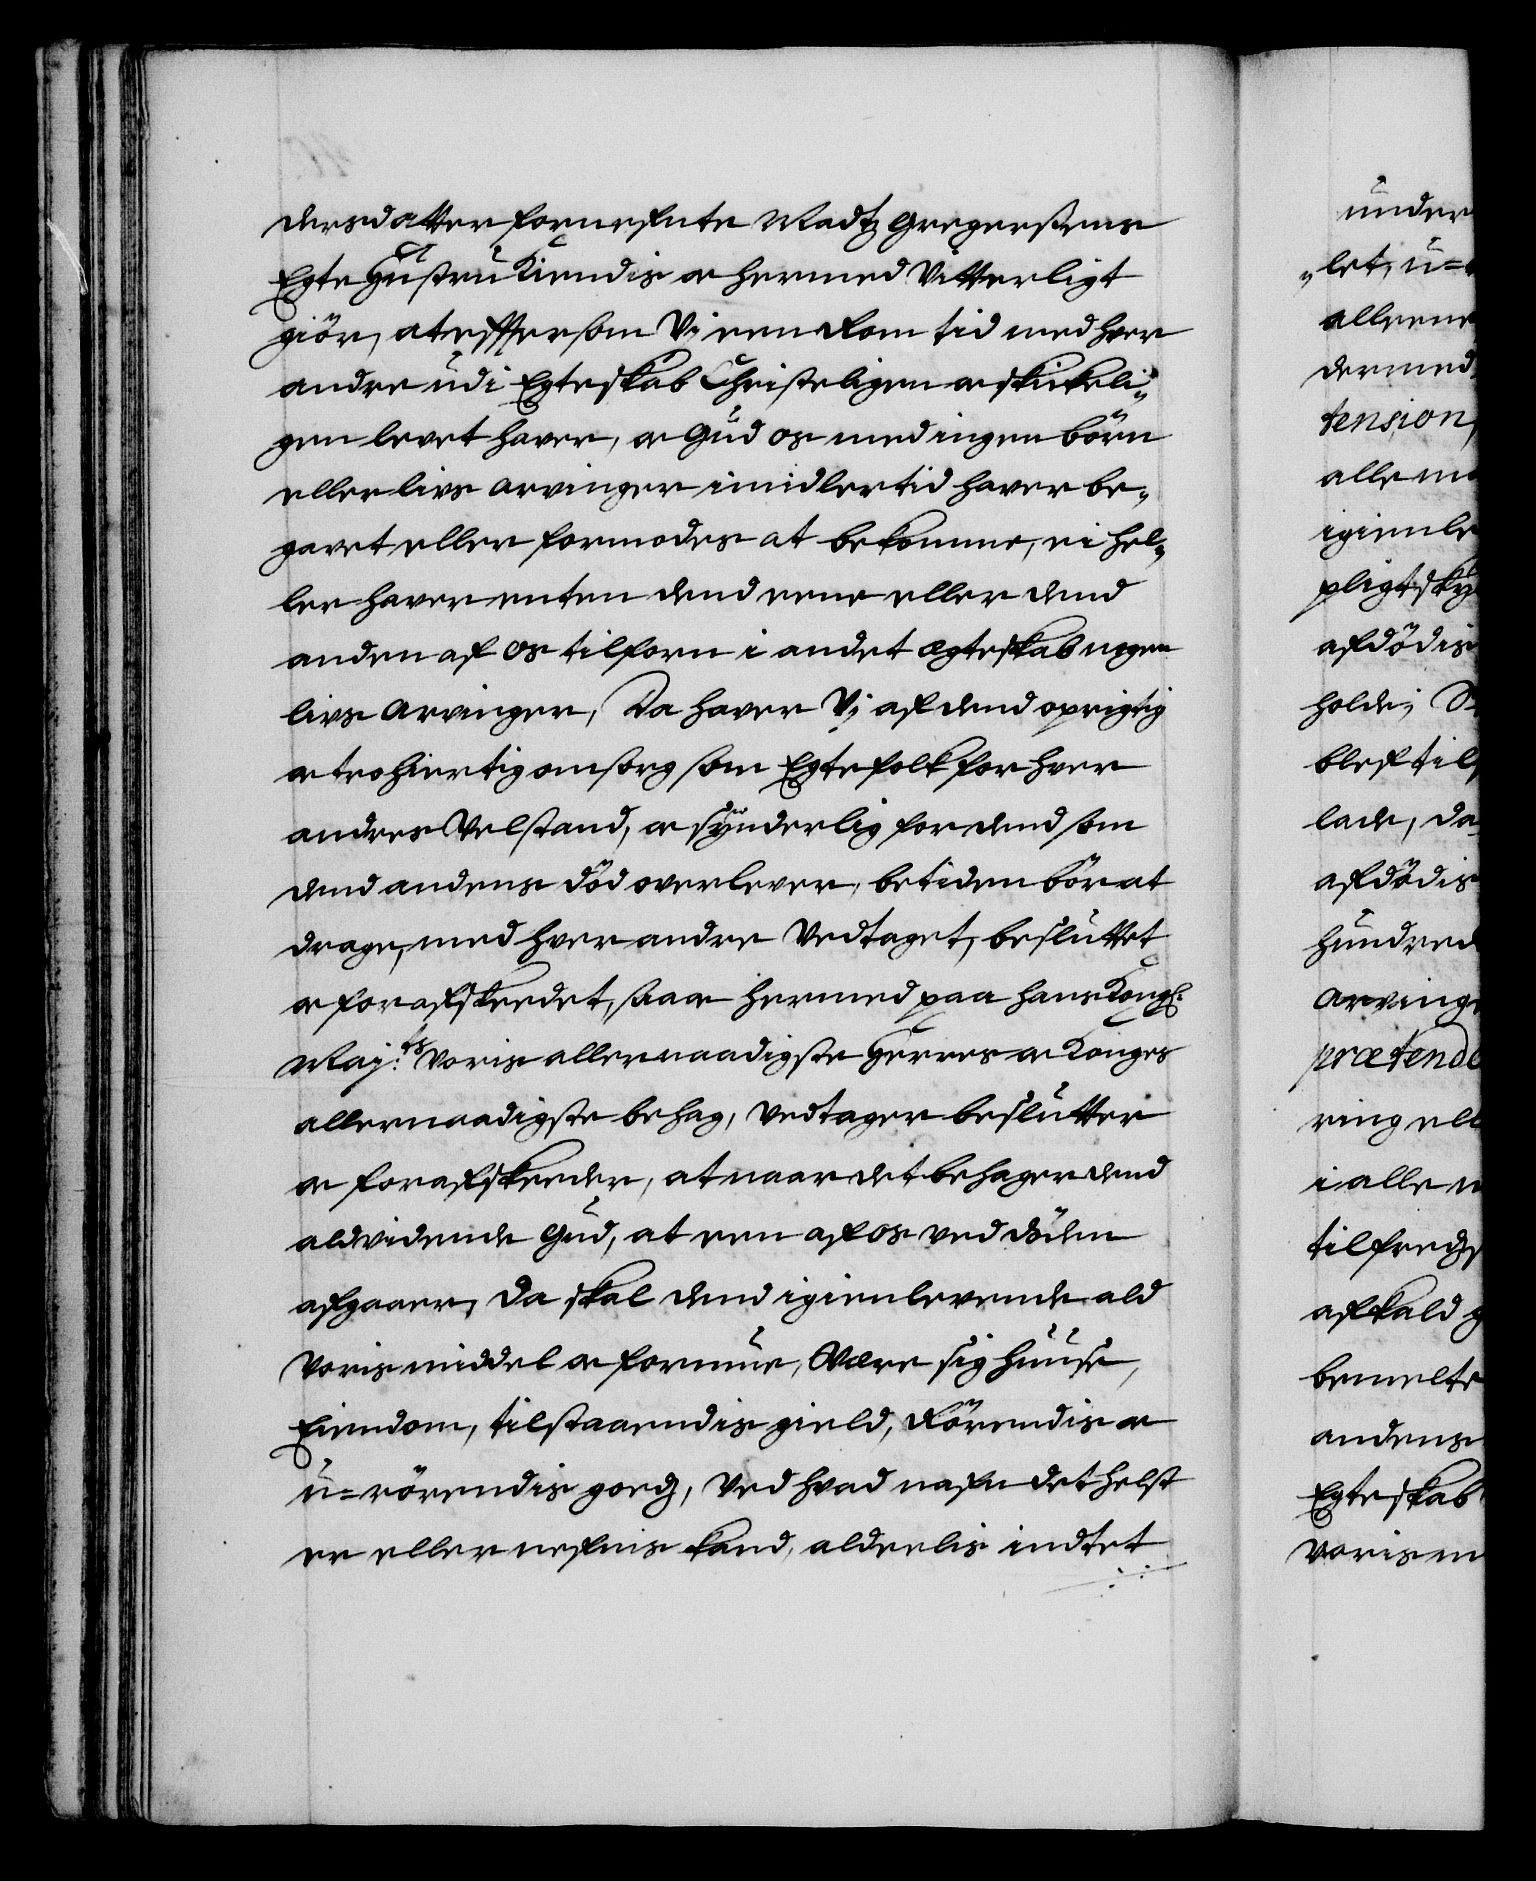 dersdatter fornefnte Madtz Gregersens
Egte Hustru Kiendis og hermed Vitterligt
giør, at efftersom Vj een rom tid med hver
andre udi Egteskab Christeligen og skickeli„
gen levet haver, og Gud os med ingen børn
eller livs arvinger imidlertid haver be„
gavet eller formodes at bekomme, ei hel„
ler haver enten dend eene eller dend
anden af os tilforn i andet ægteskab nogen
livs arvinger, Da haver Vj af dend oprigtig
og trohiertig omsorg som Egtefolk for hver
andres Velstand, og synderlig for dend som
dend andens død overlever, betiden bør at
drage, med hver andre Vedtaget, besluttet
og forafskeedet, saa og hermed paa hans Kongl:
Maj:ts Voris allernaadigste Herres og Konges
allernaadigste behag, Vedtager beslutter
og forafskeeder, at naar det behager dend
aldvidende Gud, at een af os ved døden
afgaaer, Da skal dend igienlevende ald
Voris middel og formue, Være sig huuse,
Eiendom, tilstaaendis gield, Rørendis og
u=rørendis goeds, Ved hvad nafn det helst
er eller nefnis kand, aldeelis indtet
under
„let, u=
alleene
dermed
tension,
alle m
igienle
pligt sky
afdødis
holde; D
blef til
lade, da
afdødis
hundred
arvinge
prætende
ring ell
i alle
tilfreds
afkald g
bemelte
andens
Egteskab
Voris m